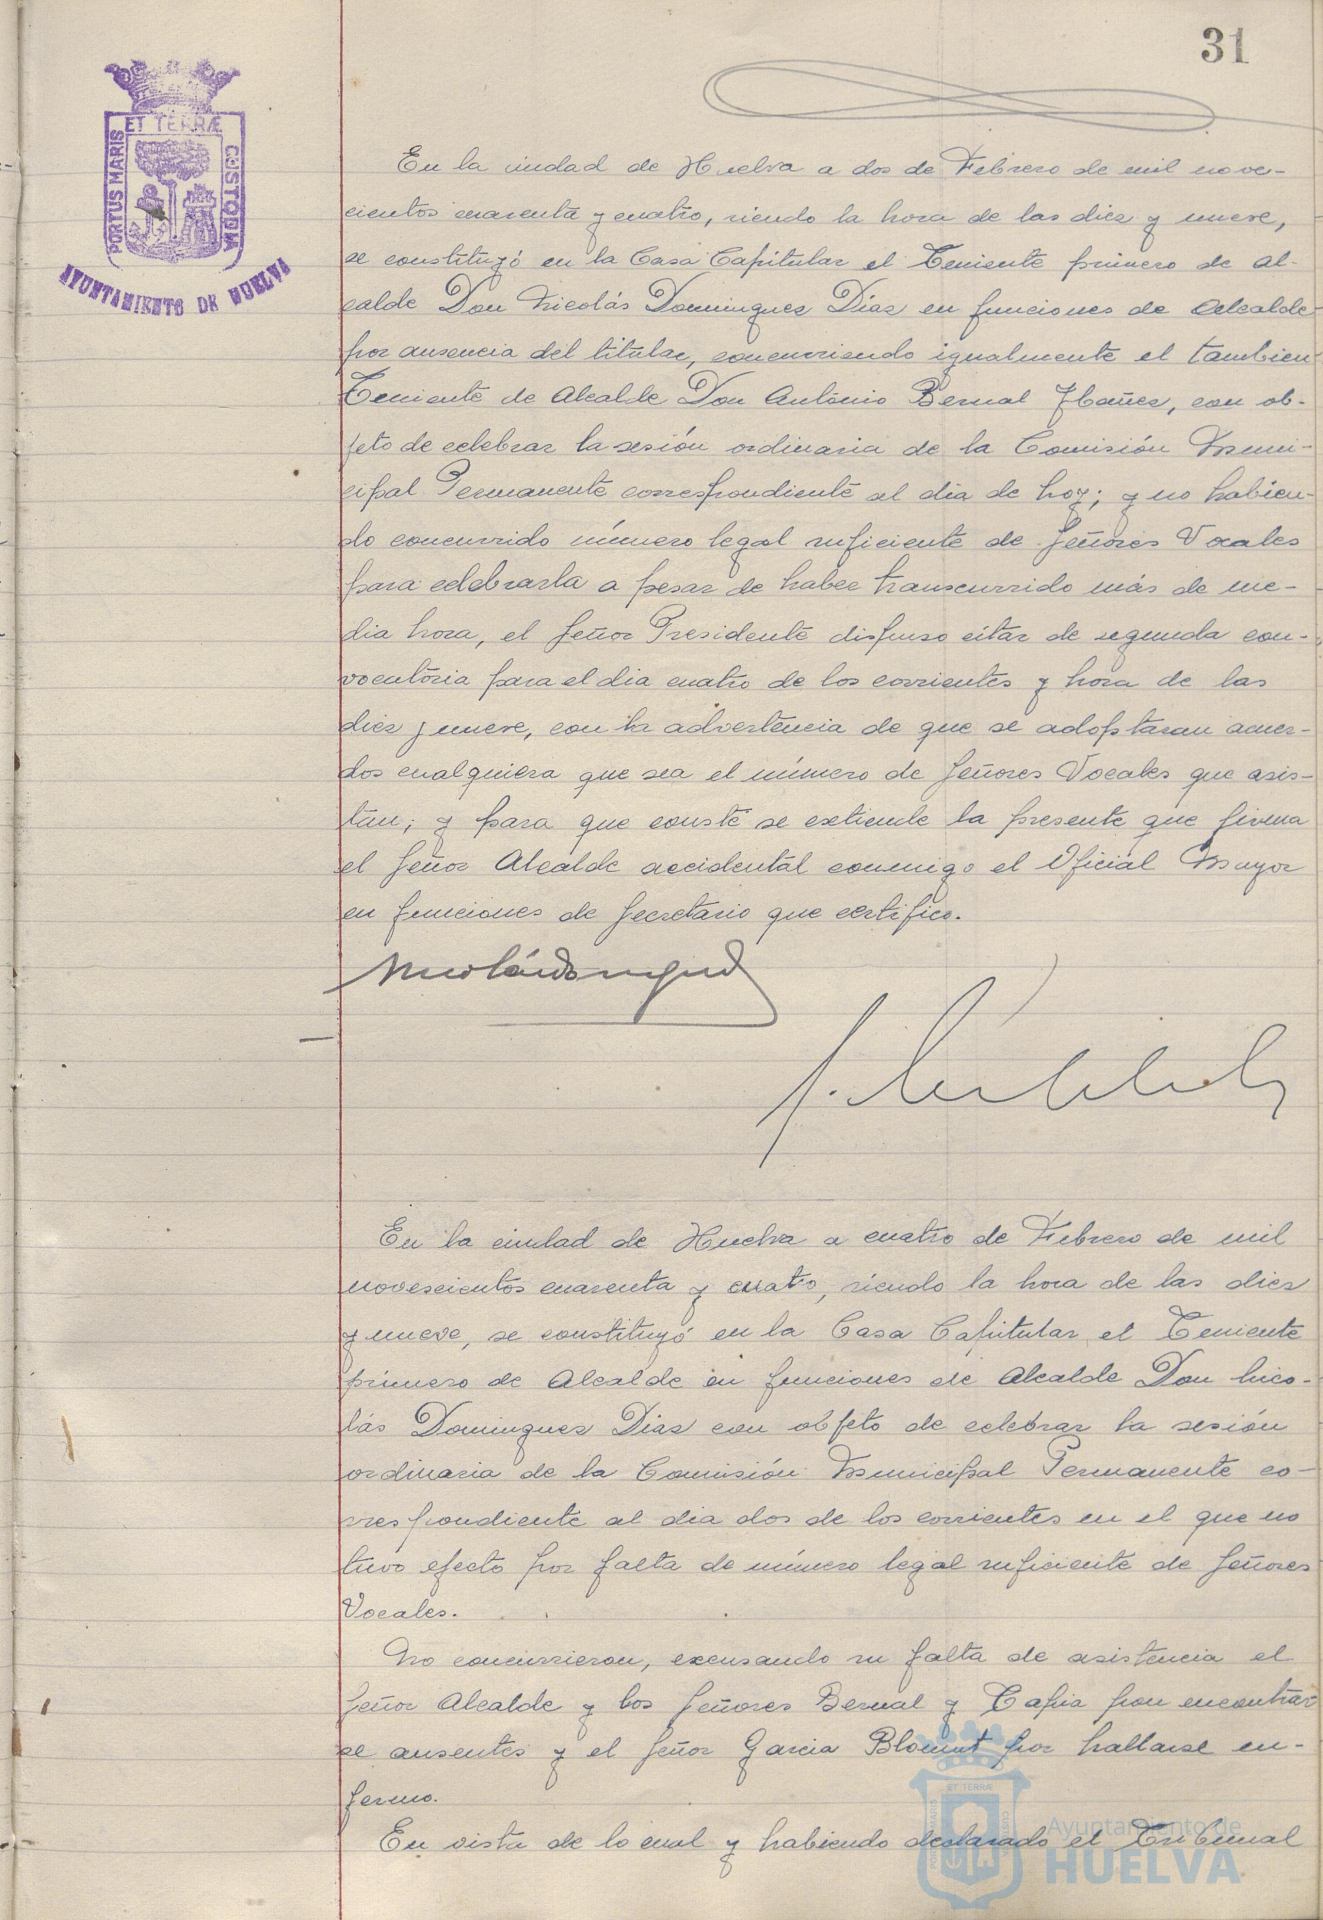 31
ET TERRÆ
PORTUS MARIS
CUSTODIA
AYUNTAMIENTO DE HUELVA
En la ciudad de Huelva a dos de Febrero de mil nove-
cientos cuarenta y cuatro, siendo la hora de las diez y nueve,
se constituyó en la Casa Capitular el Teniente primero de Al-
calde Don Nicolás Dominguez Diaz en funciones de Alcalde
por ausencia del titular, concurriendo igualmente el tambien
Teniente de Alcalde Don António Bernal Ybañez, con ob-
jeto de celebrar la sesión ordinaria de la Comisión Muni-
cipal Permanente correspondiente al dia de hoy; y no habien-
do concurrido número legal suficiente de Señores Vocales
para celebrarla a pesar de haber transcurrido más de me-
dia hora, el Señor Presidente dispuso citar de segunda con-
vocatoria para el dia cuatro de los corrientes y hora de las
diez y nueve, con la advertencia de que se adoptaran acuer-
dos cualquiera que sea el número de Señores Vocales que asis-
tan; y para que conste se extiende la presente que firma
el Señor Alcalde accidental conmigo el Oficial Mayor
en funciones de Secretario que certifico.
En la ciudad de Huelva a cuatro de Febrero de mil
novescientos cuarenta y cuatro, siendo la hora de las diez
y nueve, se constituyó en la Casa Capitular el Teniente
primero de Alcalde en funciones de Alcalde Don Nico-
lás Dominguez Diaz con objeto de celebrar la sesión
ordinaria de la Comisión Municipal Permanente co-
rrespondiente al dia dos de los corrientes en el que no
tuvo efecto por falta de número legal suficiente de Señores
Vocales.
No concurrieron, excusando su falta de asistencia el
Señor Alcalde y los Señores Bernal y Tapia por encontrar-
se ausentes y el Señor Garcia Blomut por hallarse en-
fermo.
En vista de lo cual y habiendo declarado el Tribunal
Ayuntamiento de
HUELVA